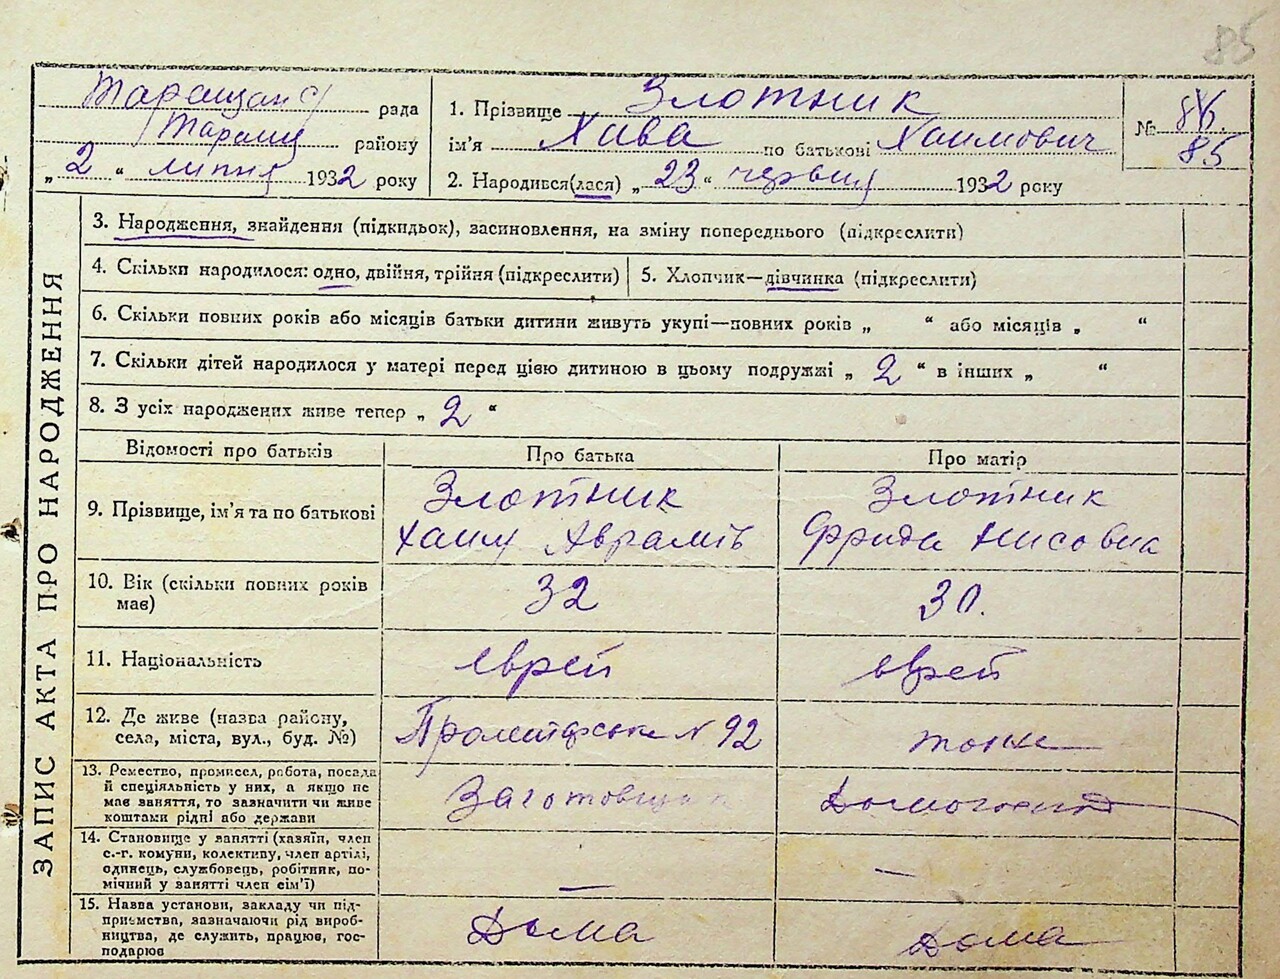 85
Таращанс рада
Таращ району
„2“ липня 1932 року
1. Прізвище Злотник
ім'я Хава по батькові Хаимович
2. Народився(лася) „23“ червня 1932 року
№ 86.
85
ЗАПИС АКТА ПРО НАРОДЖЕННЯ
3. Народження, знайдення (підкидьок), засиновлення, на зміну попереднього (підкреслити)
4. Скільки народилося: одно, двійня, трійня (підкреслити)
5. Хлопчик—дівчинка (підкреслити)
6. Скільки повних років або місяців батьки дитини живуть укупі—повних років „ “ або місяців „ “
7. Скільки дітей народилося у матері перед цією дитиною в цьому подружжі „ 2 “ в інших „ “
8. З усіх народжених живе тепер „ 2 “
Відомості про батьків
Про батька
Про матір
9. Прізвище, ім'я та по батькові
Злотник
Хаим Аврамів
Злотник
Фрида Нисовна
10. Вік (скільки повних років
має)
32
30.
11. Національність
еврей
еврей
12. Де живе (назва району,
села, міста, вул., буд. №)
N 92
тоже
13. Ремество, промисел, робота, посада
й спеціяльність у них, а якщо не
має заняття, то зазначити чи живе
коштами рідні або держави
Заготовщик
14. Становище у занятті (хазяїн, член
с.-г. комуни, колективу, член артілі,
одинець, службовець, робітник, по-
мічний у занятті член сім'ї)
—
—
15. Назва установи, закладу чи під-
приємства, зазначаючи рід вироб-
ництва, де служить, працює, гос-
подарює
Дома
Дома